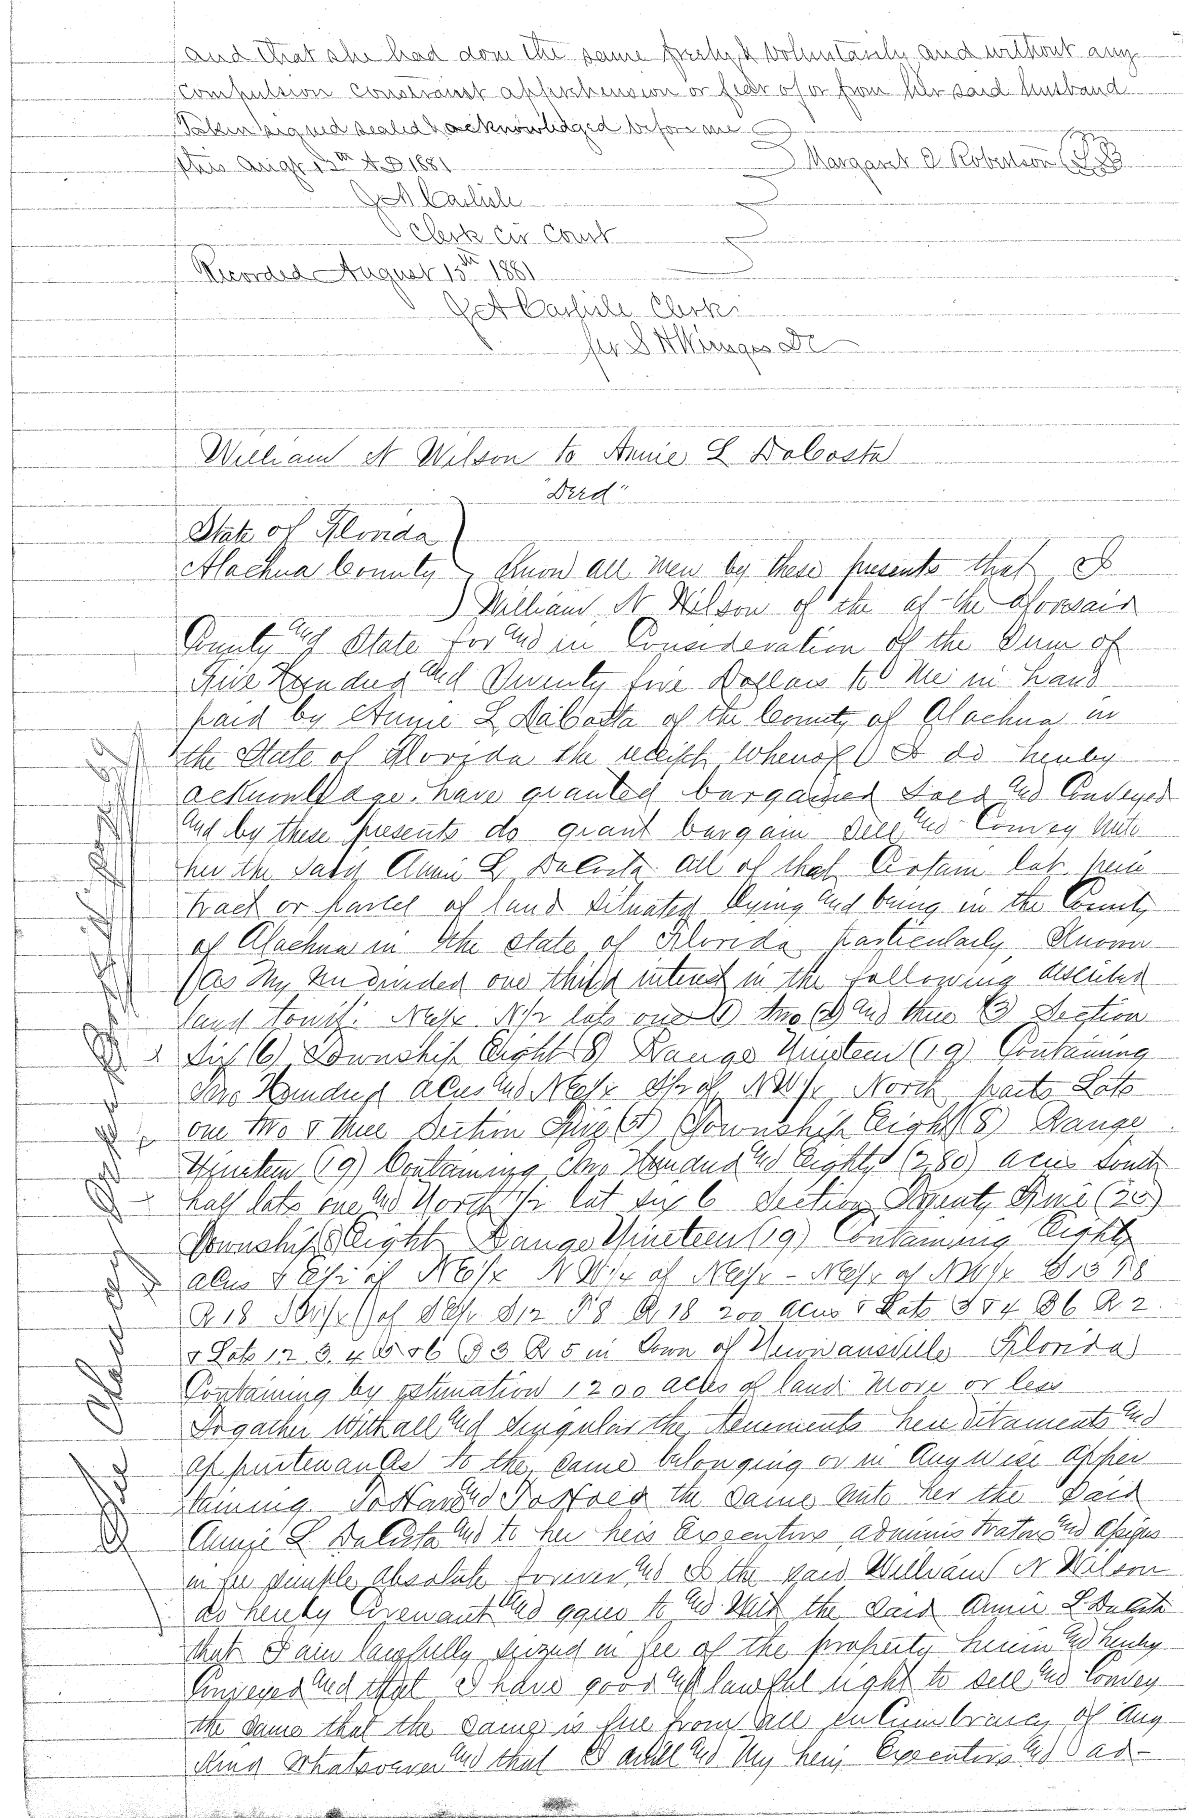 and that she had done the same freely & voluntarily and without any
compulsion constraint apprehension or fear of or from her said husband
Taken signed sealed & acknowledged before me
this Augt 13th AD 1881 Margaret E Robertson (LS)
J A Carlisle
Clerk Cir Court
Recorded August 15th 1881
J A Carlisle Clerk
per S H Wienges DC
William N Wilson to Annie L DaCosta
"Deed"
State of Florida
Alachua County Know all men by these presents that I
William N Wilson of the of the aforesaid
County and State for and in Consideration of the Sum of
Five Hundred and Twenty five Dollars to Me in hand
paid by Annie L DaCosta of the County of Alachua in
the State of Florida the receipt whereof I do hereby
acknowledge. have granted bargained Sold and Conveyed
and by these presents do grant bargain Sell and Convey unto
her the said Annie L DaCosta all of that Certain lot piece
tract or parcel of land Situated lying and being in the County
of Alachua in the state of Florida particularly Known
as My undivided one third interest in the following described
land towit: NE¼ N½ lots one (1) two (2) and three (3) Section
Six (6) Township Eight (8) Range Nineteen (19) Containing
Two Hundred acres and NE¼ S½ of NW¼ North parts Lots
one two & three Section Five (5) Township Eight (8) Range
Nineteen (19) Containing Two Hundred and Eighty (280) acres South
half lots one and North ½ lot six 6 Section Twenty Five (25)
Township (8) Eight Range Nineteen (19) Containing Eighty
acres & E½ of NE¼ NW¼ of NE¼ - NE¼ of NW¼ S13 T8
R 18 SW¼ of SE¼ S12 T8 R 18 200 acres & Lots 3 & 4 B6 R 2
& Lots 1 2 3. 4 5 & 6 B 3 R 5 in Town of Newnansville Florida
Containing by estimation 1200 acres of land More or less
Togather With all and Singular the tenements hereditaments and
appurtenances to the same belonging or in Any wise apper
taining To Have and To Hold the Same unto her the Said
Annie L DaCosta and to her heirs Executors administrators and assigns
in fee simple absolute forever and I the said William N Wilson
do hereby Covenant and agree to and With the Said Annie L DaCosta
that I am lawfully seized in fee of the property herein and hereby
Conveyed and that I have good and lawful right to sell and Convey
the same that the same is free from all incumbrance of Any
Kind Whatsoever and that I will and My heirs Executors and ad-
See
Book page 69